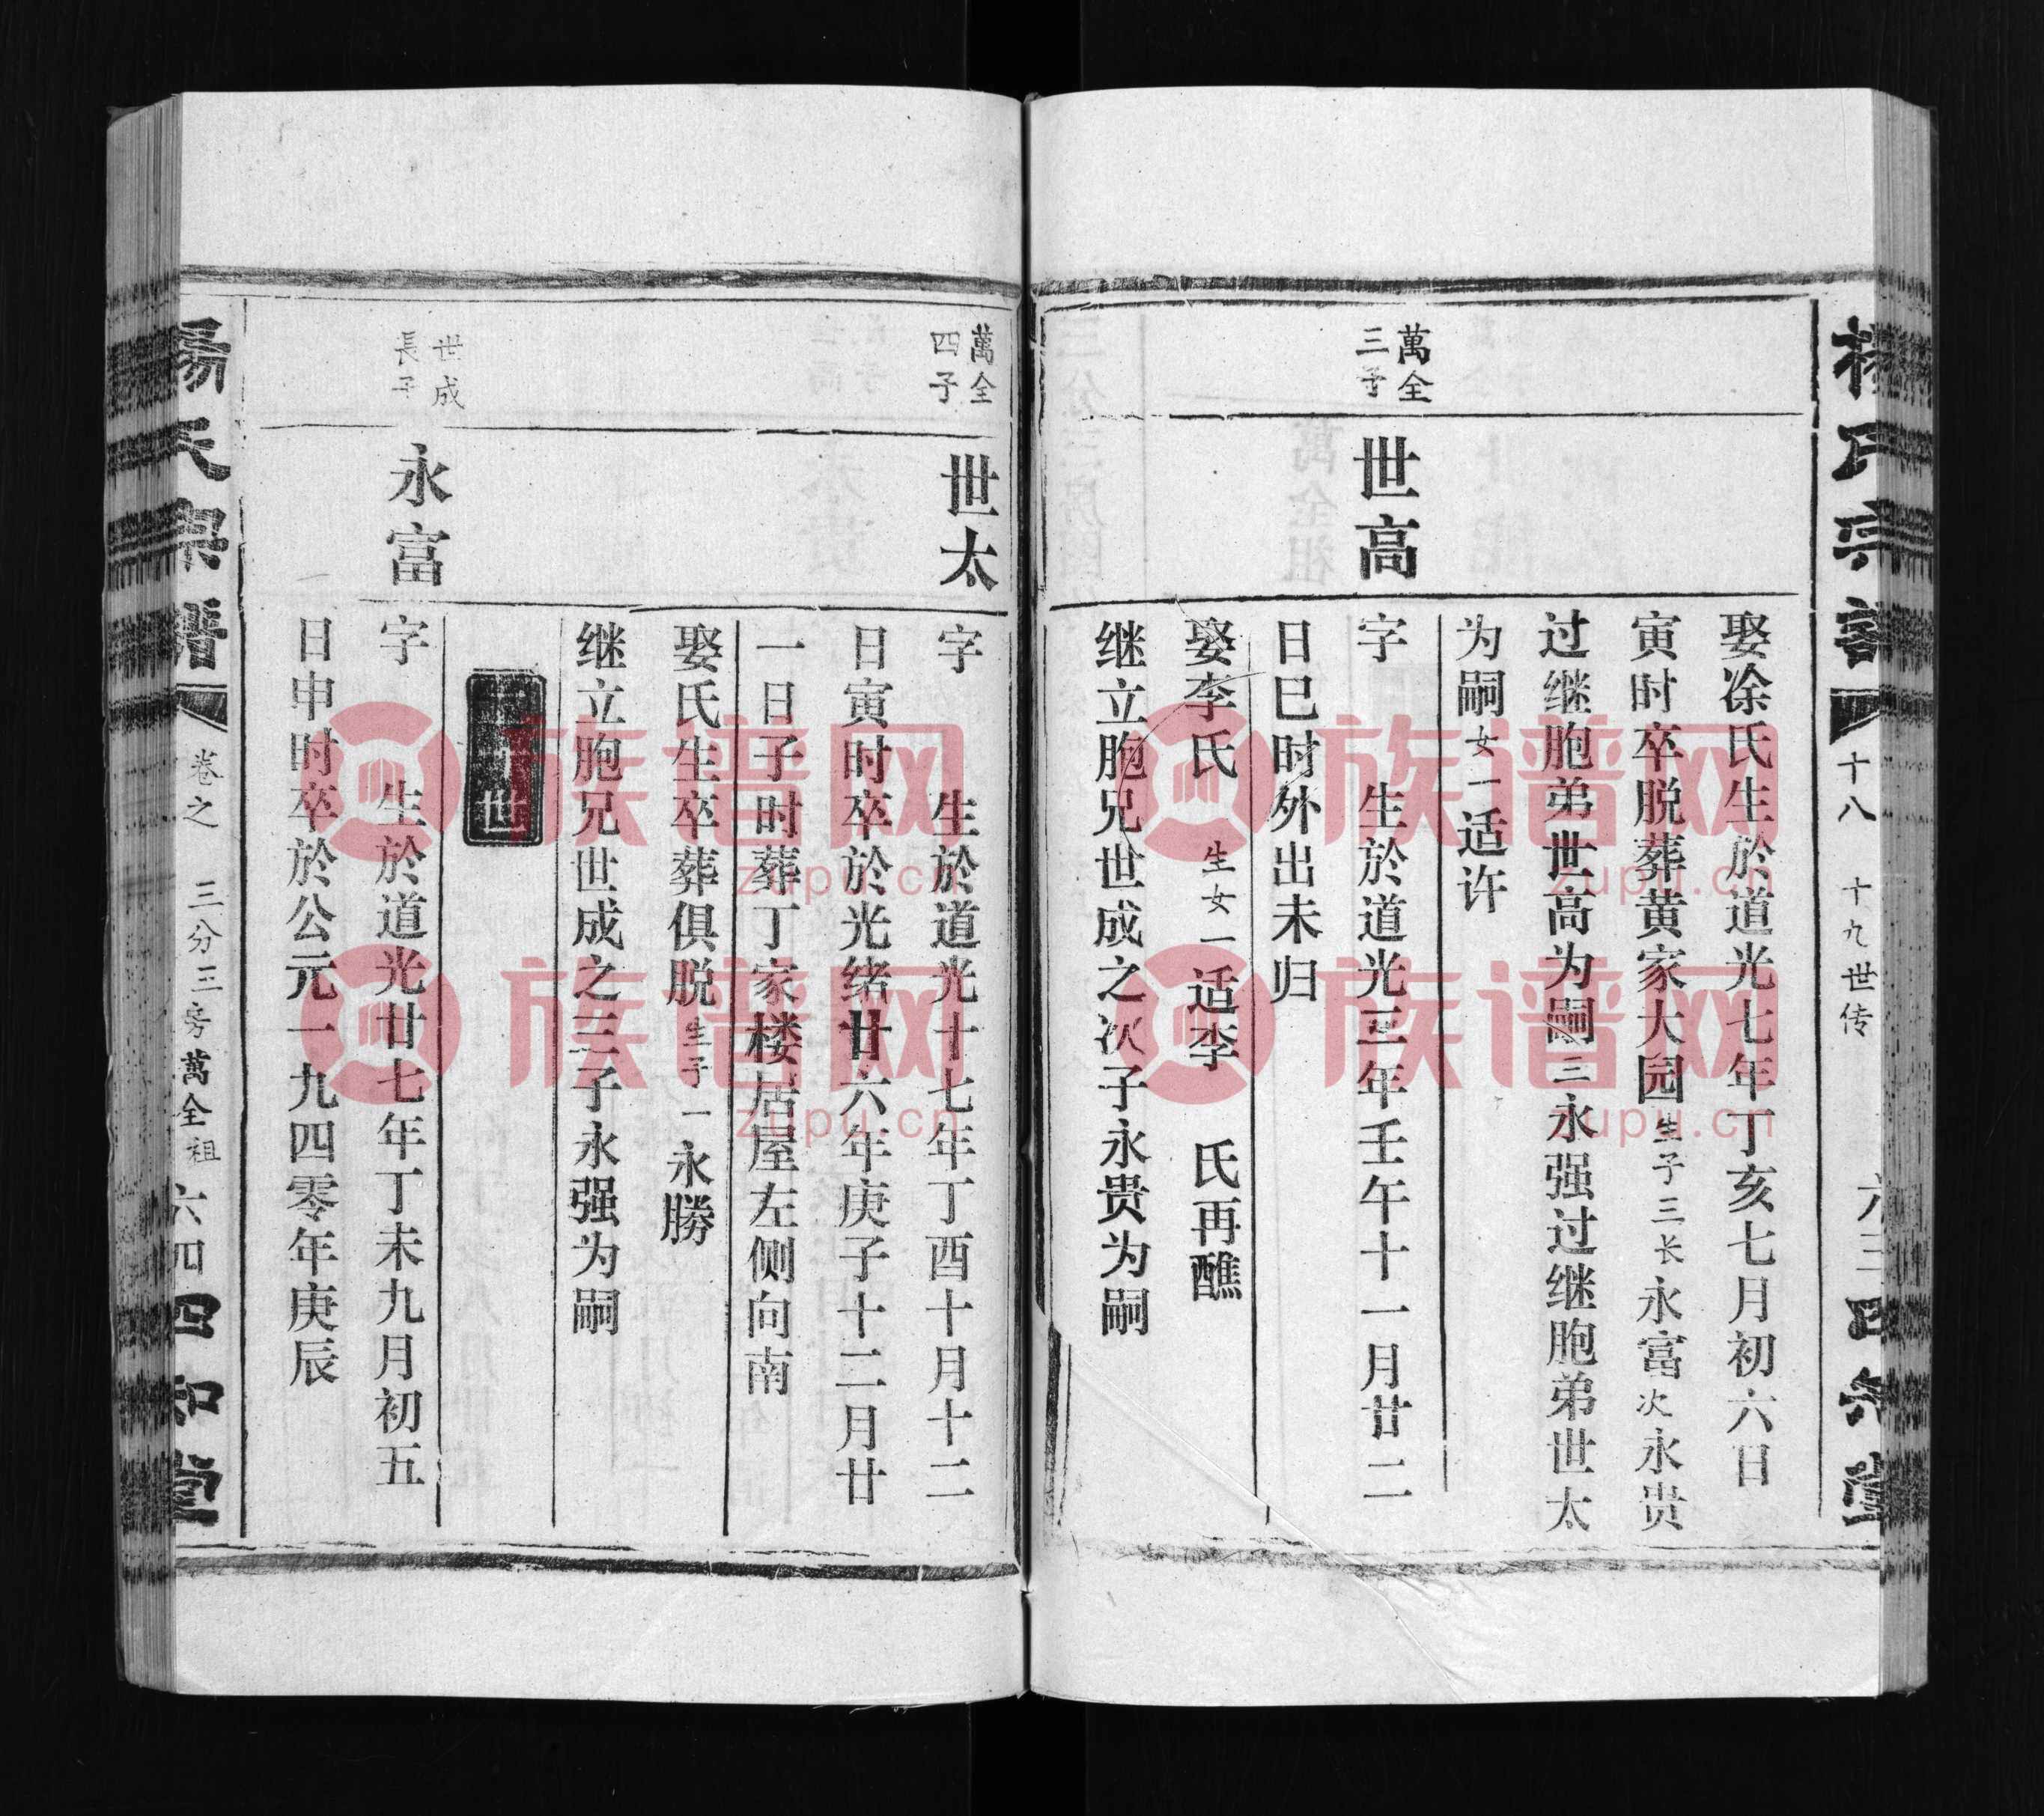 楊氏宗譜
十八 十九世传
六三
四知堂
娶涂氏生於道光七年丁亥七月初六日
寅时卒脱葬黄家大园生子三长永富次永贵
过继胞弟世高为嗣三永强过继胞弟世太
为嗣女一适许
萬全
三子
世高
字 生於道光三年壬午十一月廿二
日巳时外出未归
娶李氏 生女一适李 氏再醮
继立胞兄世成之次子永贵为嗣
萬全
四子
世太
字 生於道光十七年丁酉十月十二
日寅时卒於光绪廿六年庚子十二月廿
一日子时葬丁家楼居屋左侧向南
娶氏生卒葬俱脱生子一永勝
继立胞兄世成之三子永强为嗣
世
世成
長子
永富
字 生於道光廿七年丁未九月初五
日申时卒於公元一九四零年庚辰
楊氏宗譜
卷之 三分三房萬全祖
六四
四知堂
族谱网
zupu.cn
族谱网
zupu.cn
族谱网
zupu.cn
族谱网
zupu.cn